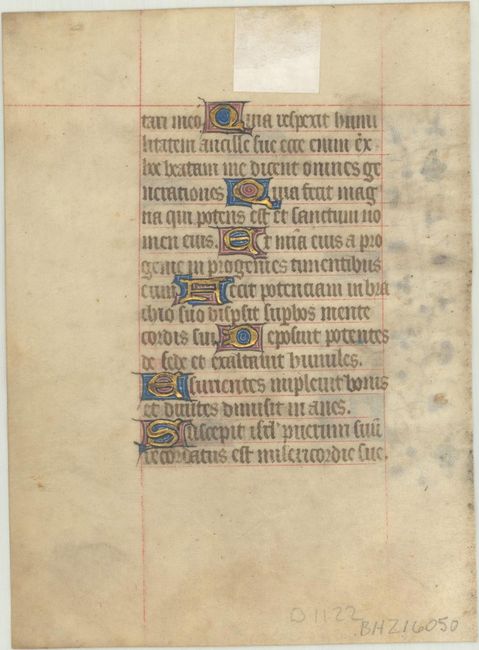 tari meo Quia respexit humi
litatem ancille sue ecce enim ex
hoc beatam me dicent omnes ge
nerationes Quia fecit mag
na qui potens est et sanctum no
men eius. Et mia eius a pro
genie in progenies timentibus
eum Fecit potenciam in bra
chio suo dispsit supbos mente
cordis sui Deposuit potentes
de sede et exaltavit humiles.
Esurientes implevit bonis
et divites dimisit inanes.
Suscepit isrl puerum suu
recordatus est misericordie sue.
D 1122
BHZ16050